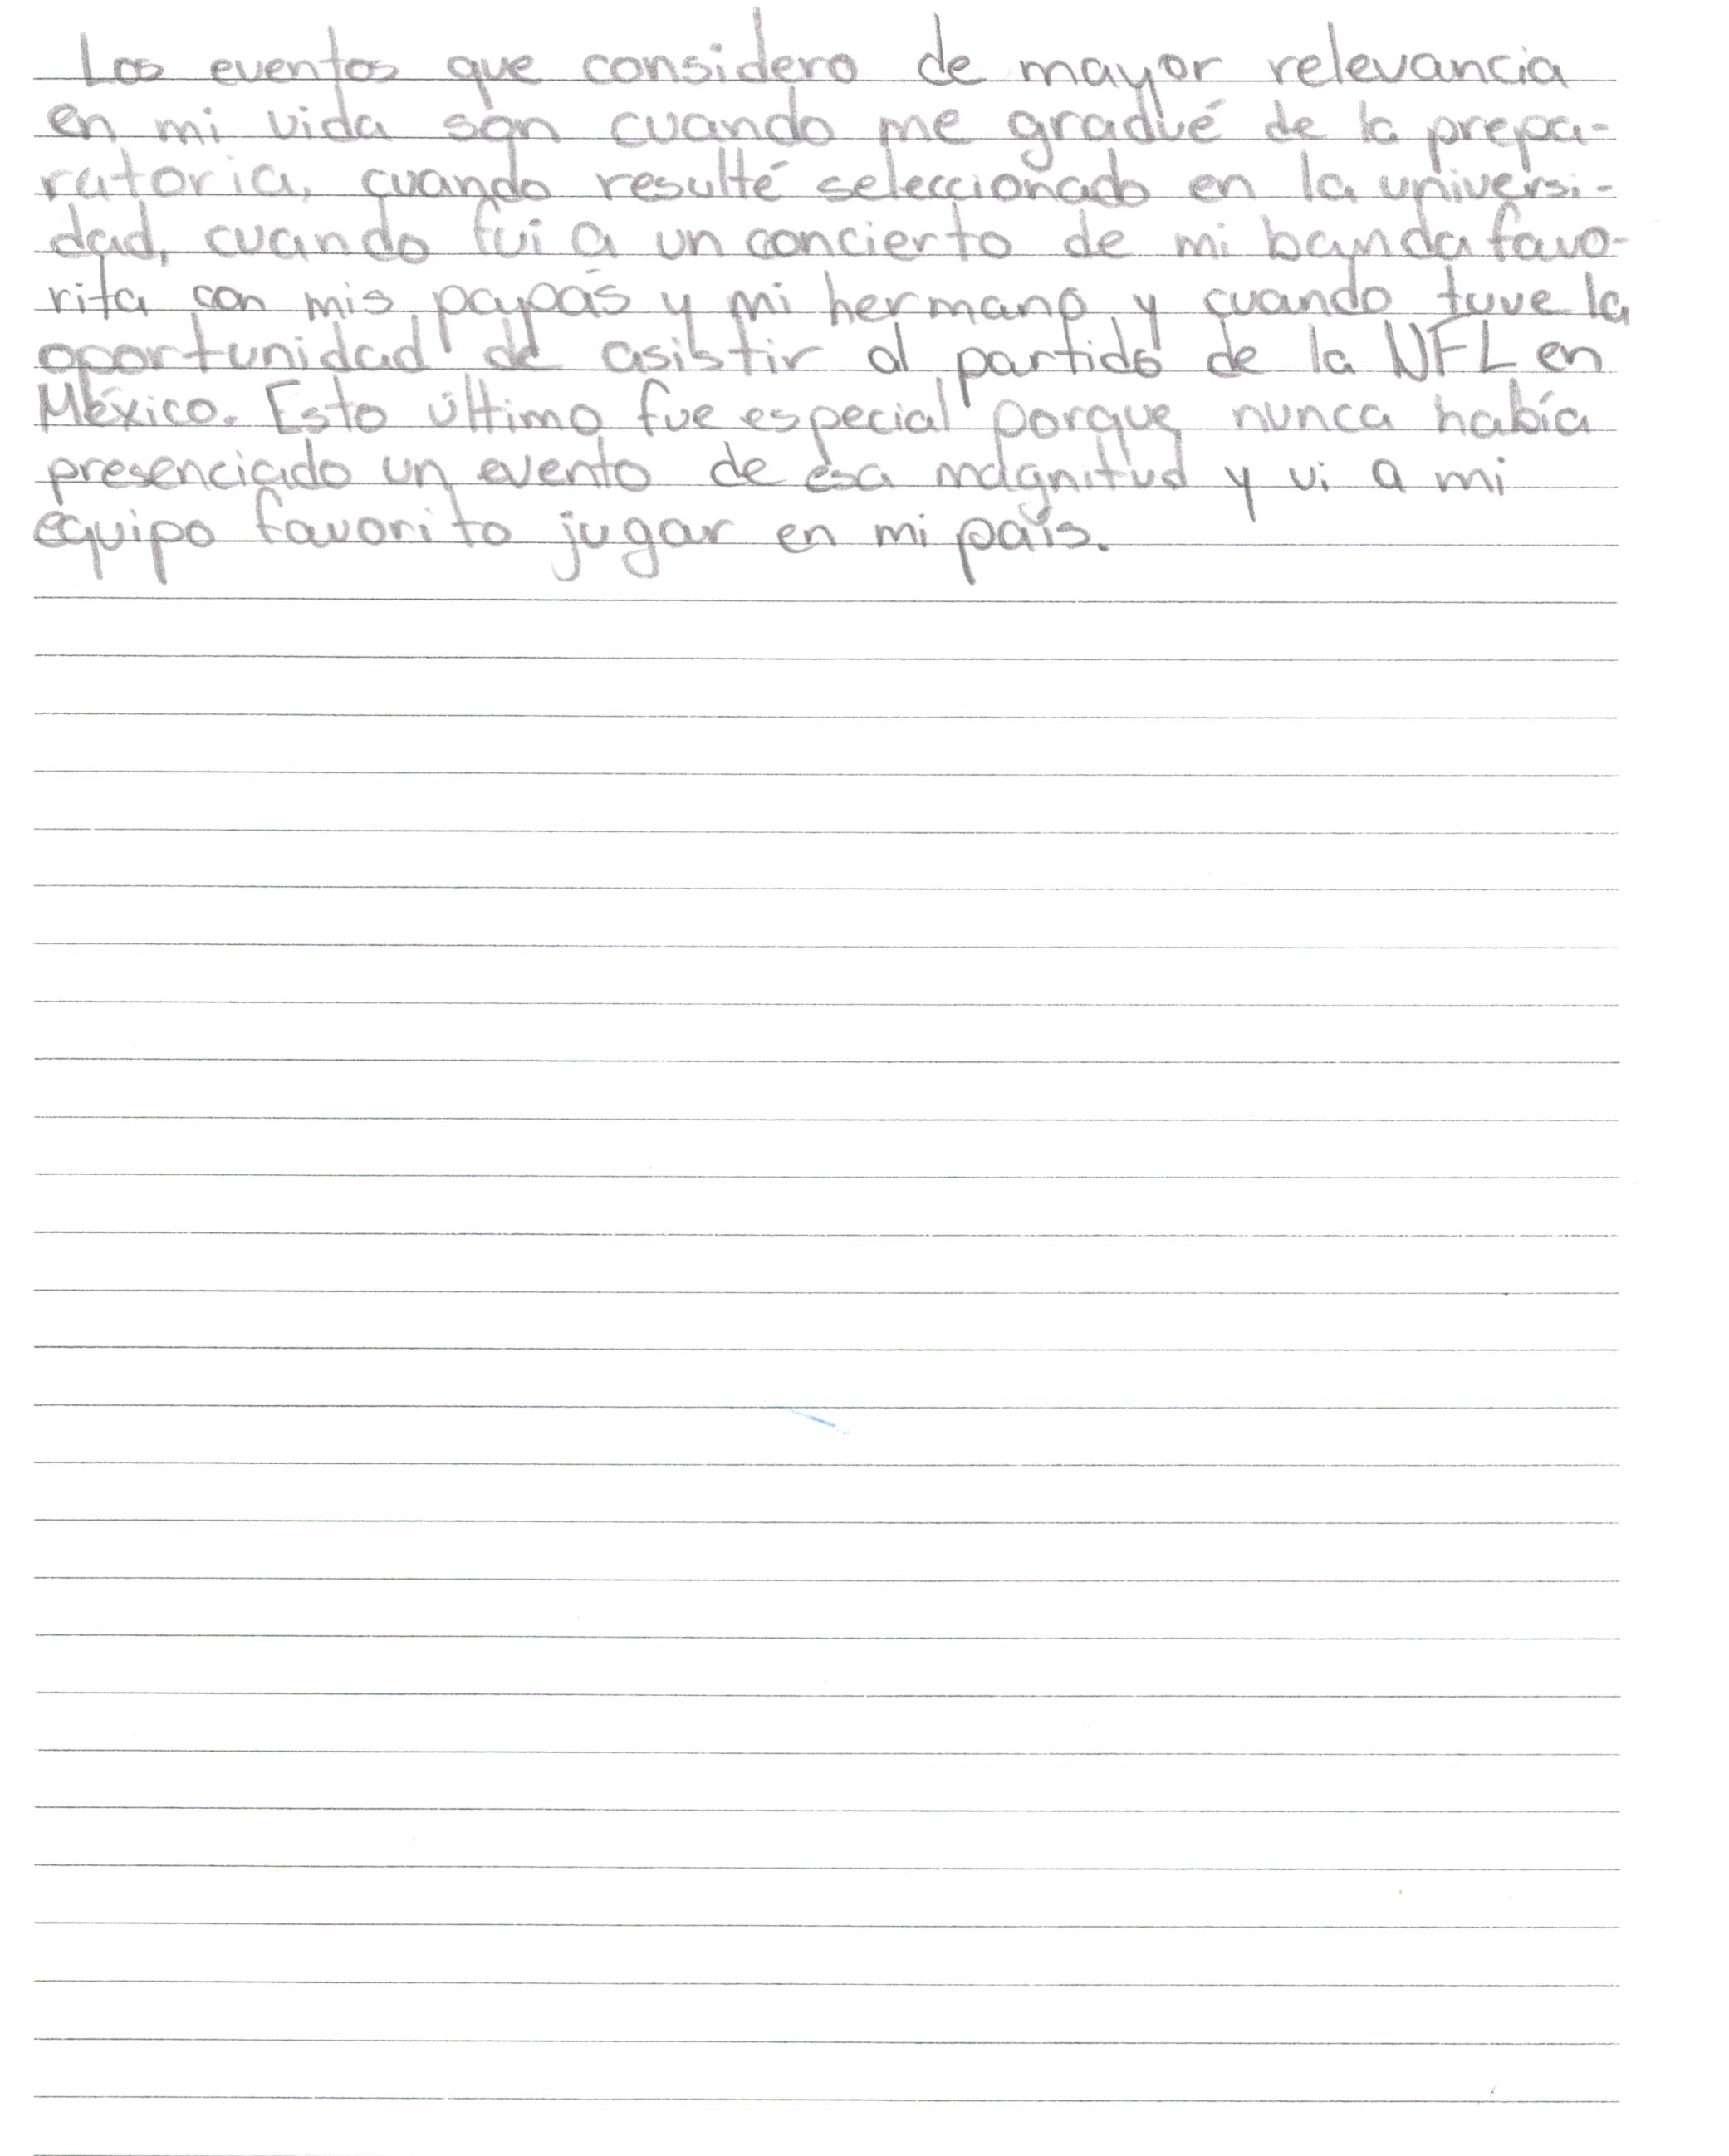 Los eventos que considero de mayor relevancia
en mi vida son cuando me gradué de la prepa-
ratoria, cuando resulté seleccionado en la universi-
dad, cuando fui a un concierto de mi banda favo-
rita con mis papás y mi hermano y cuando tuve la
oportunidad de asistir al partido de la NFL en
México. Esto último fue especial porque nunca había
presenciado un evento de esa magnitud y vi a mi
equipo favorito jugar en mi país.